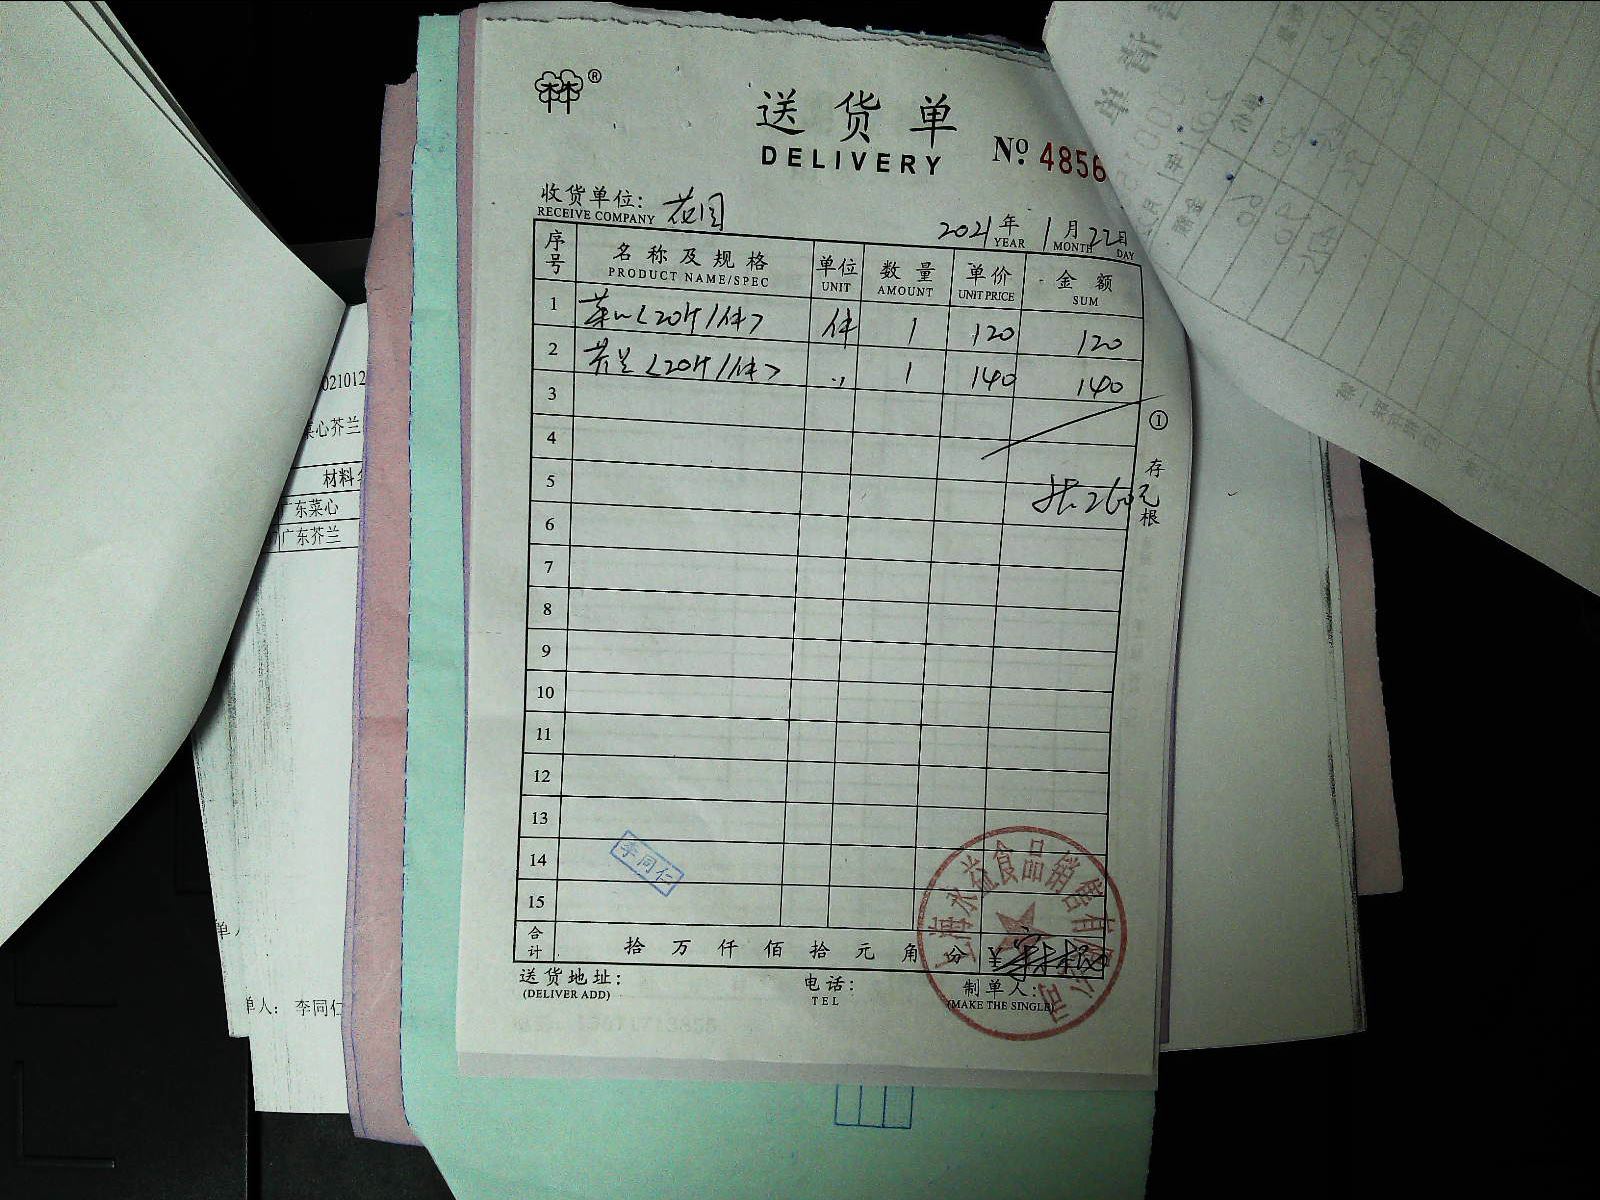 ®
送货单
DELIVERY
№ 4856
收货单位：花园
RECEIVE COMPANY
2021年1月22日
YEAR MONTH DAY
序号 名称及规格 单位 数量 单价 金额
PRODUCT NAME/SPEC UNIT AMOUNT UNIT PRICE SUM
1 菜心<20斤/件> 件 1 120 120
2 芥兰<20斤/件> 〃 1 140 140
3
4
5
共260元
6
7
8
9
10
11
12
13
14
15
① 存根
李同仁
合计 拾万仟佰拾元角份 ¥
送货地址：
(DELIVER ADD)
电话：
TEL
制单人：
(MAKE THE SINGLE)
上海永益食品销售有限公司
021012
菜心芥兰
材料
广东菜心
广东芥兰
单人
单人： 李同仁